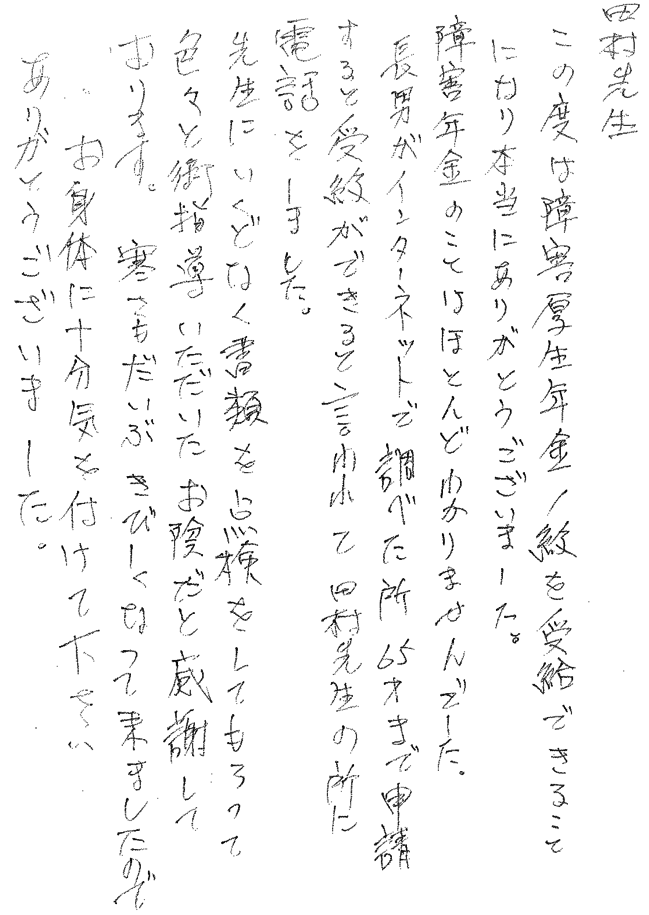 田村先生
この度は障害厚生年金1級を受給できること
になり本当にありがとうございました。
障害年金のことはほとんどわかりませんでした。
長男がインターネットで調べた所65才まで申請
すると受級ができると言われて田村先生の所に
電話をしました。
先生にいくどなく書類を点検をしてもらって
色々と御指導いただいたお陰だと感謝して
おります。寒さもだいぶきびしくなって来ましたので
お身体に十分気を付けて下さい
ありがとうございました。